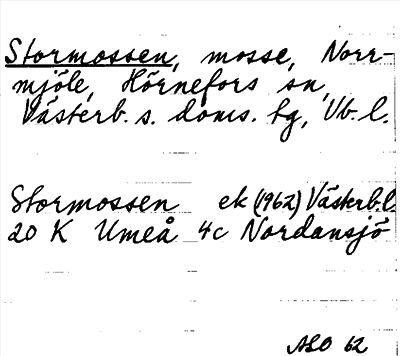 Stormossen, mosse, Norr-
mjöle, Hörnefors sn,
Västerb. s. doms. tg, Vb. l.
Stormossen ek (1962) Västerb.l.
20 K Umeå 4c Nordansjö
ALO 62